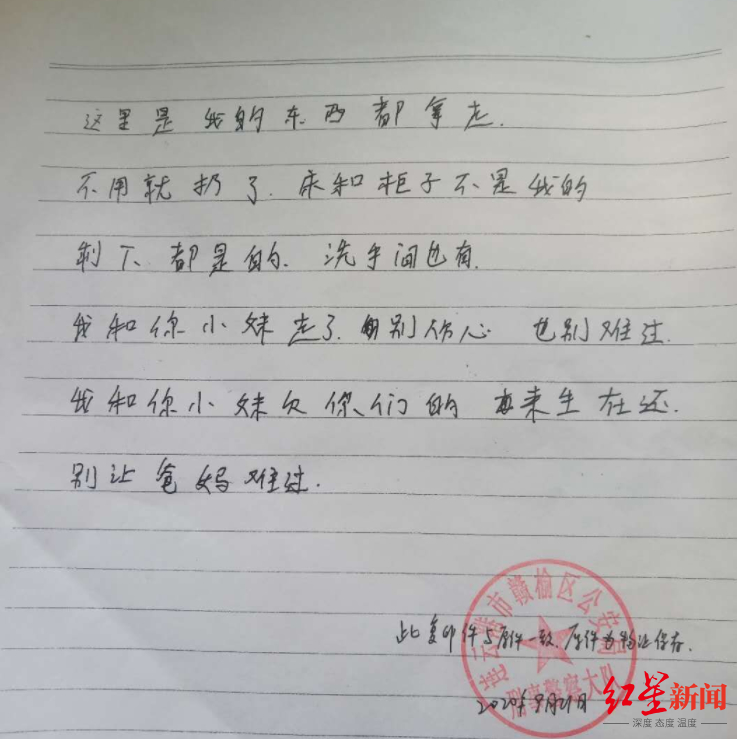 这里是我的东西都拿走.
不用就扔了.床和柜子不是我的
剩下.都是的.洗手间也有.
我和你小妹走了.别伤心 也别难过.
我和你小妹欠你们的 来生在还.
别让爸妈难过.
连云港市赣榆区公安局
刑事警察大队
此复印件与原件一致.原件为物证保存.
2020年9月21日
红星新闻
深度 态度 温度